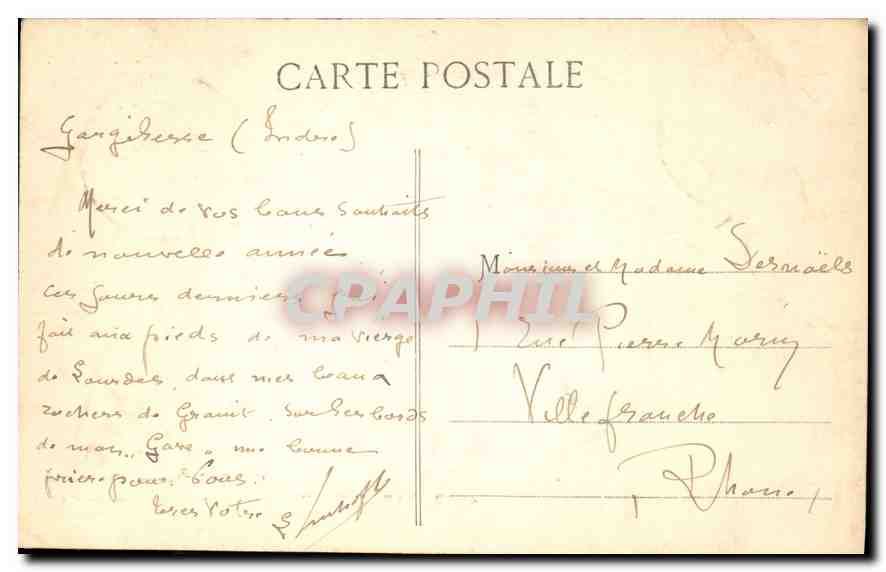 CARTE POSTALE
Gargilesse (Indre)
Merci de vos bons souhaits
de nouvelle année
Ces jours derniers j'ai
fait aux pieds de ma vierge
de Lourdes, dans mes beaux
rochers de Granit, sur les bords
de mon "Gare" une bonne
prière pour vous.
Très votre
Monsieur et Madame Desnoëls
1 Rue Pierre Morin
Villefranche
(Rhone)
CPAPHIL